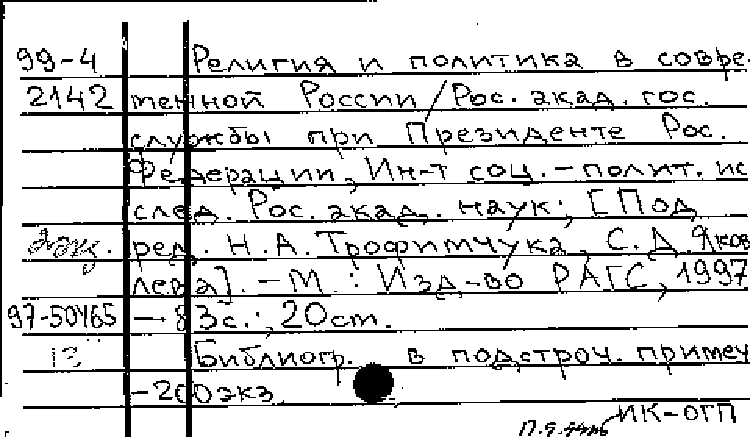 99-4 Религия и политика в совре-
2142 менной России / Рос. акад. гос.
службы при Президенте Рос.
Федерации, Ин-т соц.-полит. ис
след. Рос. акад. наук; [Под
2экз. ред. Н.А. Трофимчука, С.Д. Яков
лева]. - М. : Изд-во РАГС, 1997
97-50465 - 83с.; 20см.
13 Библиогр. в подстроч. примеч
-200экз
ИК-ОГП